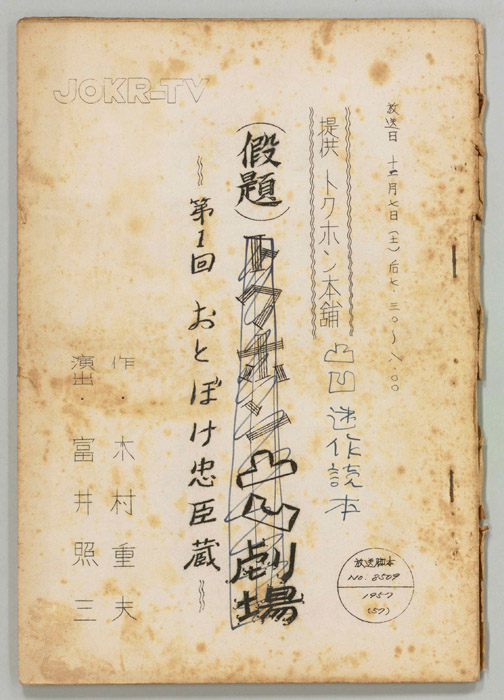 JOKR-TV
放送日 十二月七日(土)后七.三〇〜八.〇〇
提供 トクホン本舗
凸凹迷作読本
(假題)トクホン凸凹劇場
第1回 おとぼけ忠臣蔵
作・木村重夫
演出・富井照三
放送脚本
NO. 8509
1957
(57)